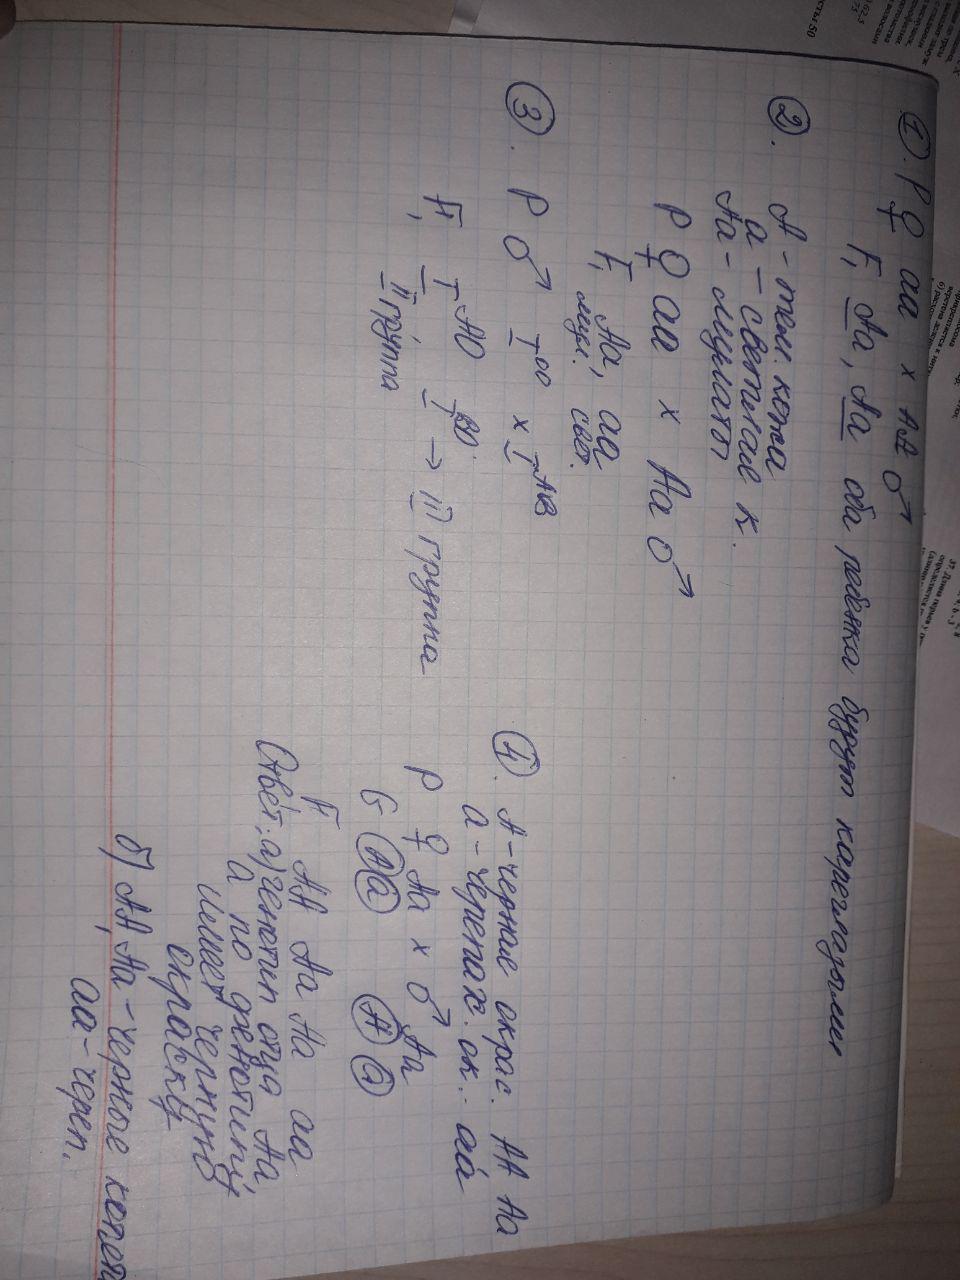 1. P ♀ aa x AA ♂
F₁ Aa, Aa оба ребёнка будут кареглазыми
2. A - тем. кожа
a - светлые к.
Aa - мулаты
P ♀ aa x Aa ♂
F₁ Aa, aa
мул. свет.
3. P ♂ I⁰⁰ x Iᴬᴮ
F₁ Iᴬ⁰ Iᴮ⁰ → III группа
II группа
1. A - черные окрас. AA Aa
a - черепах. ок. aa
P ♀ Aa x ♂ Aa
G A a A a
F AA Aa Aa aa
Ответ: а) генотип отца Aa,
а по фенотипу
имеет черную
окраску
б) AA, Aa - черные
aa - череп.